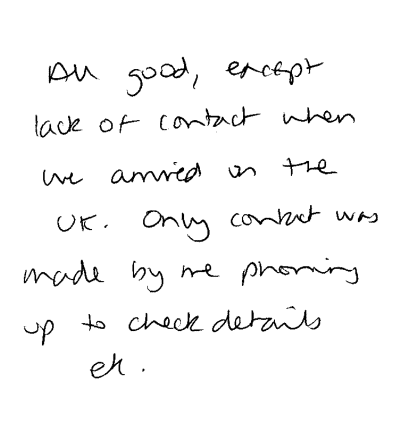 All good, except
lack of contact when
we arrived in the
UK. Only contact was
made by me phoning
up to check details
etc.